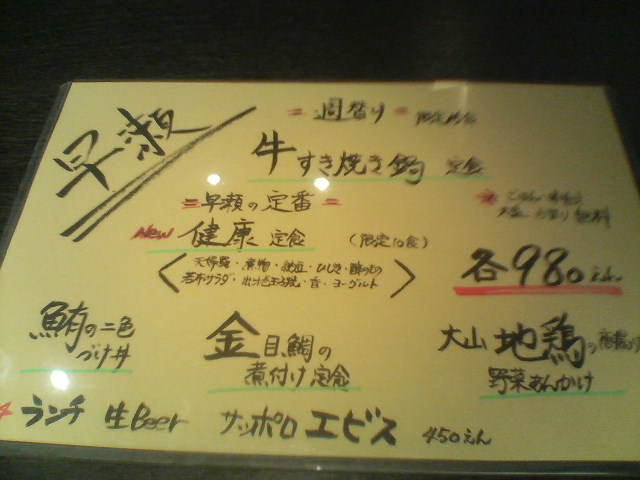 早瀬
＝週替り＝ 限定
牛すき焼き鍋 定食
＝早瀬の定番＝
New 健康 定食 （限定10食）
大盛 お替り 無料
煮物・納豆・ひじき・酢のもの
若布サラダ・出汁巻玉子焼・香・ヨーグルト
各980えん
鮪の二色
づけ丼
金目鯛の
煮付け定食
大山地鶏の
野菜あんかけ
ランチ 生Beer サッポロ エビス 450えん